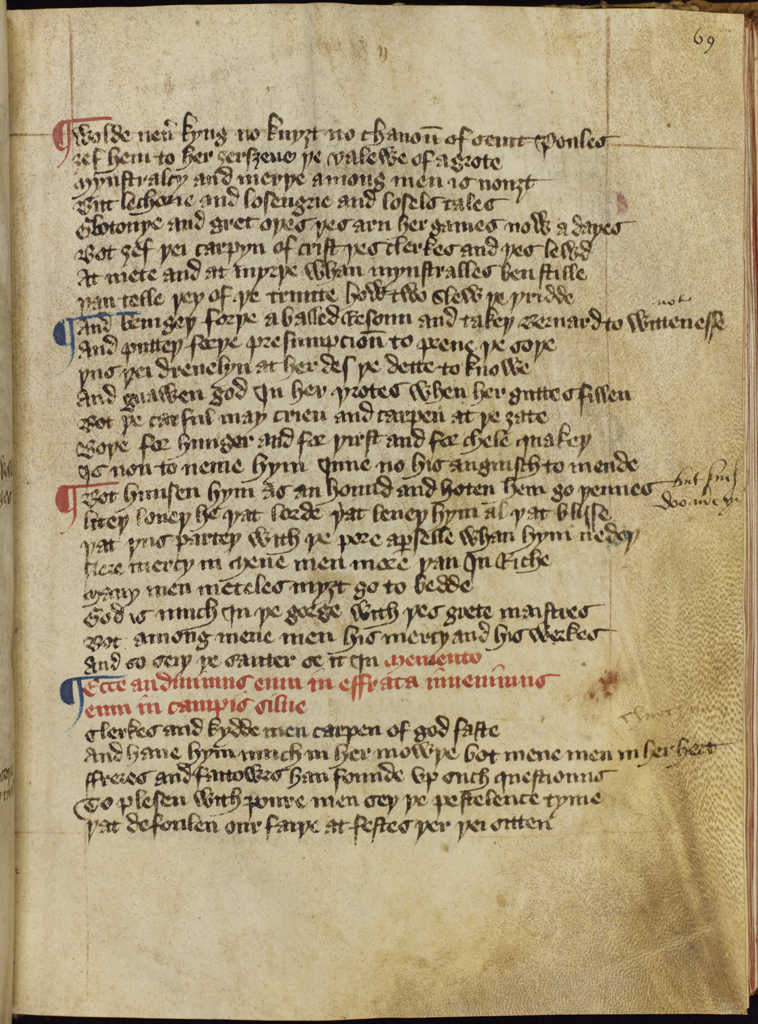 69
Wolde neuer kyng no knyȝt no chanon of seint Poules
ȝef hem to her ȝersȝeue þe valewe of a grote
Mynstralcy and merþe among men is nouȝt
But lecherie and losengrie and losels tales
Glotonye and gret oþes þes arn her games now a dayes
Bot ȝef þei carpyn of crist þes clerkes and þes lewd
At mete and at myrþe whan mynstralles ben stille
þan telle þey of þe trinite how two slew þe þridde
And bringeþ forþe a balled resoun and takeþ Bernard to wittenesse
And putteþ forþe presumpcion to preue þe soþe
þus þei dreuelyn at her des þe dette to knowe
And gnawen god In her þrotes when her guttes fillen
Bot þe carful may crien and carpen at þe ȝate
Boþe for hunger and for þirst and for chele quakeþ
Is non to neme hym Inne no his anguisch to mende
Bot hunsen hym as an hound and hoten hem go þennes
litel loueþ he þat lorde þat leneþ hym al þat blysse
þat þus parteþ with þe pore aperselle whan hym nedeþ
Nere mercy in mene men more þan In Riche
Many men meteles myȝt go to bedde
God is much In þe gorge with þes grete maistres
Bot among mene men his mercy and his werkes
And so seiþ þe sauter se it In Memento
Ecce audiuimus eum in effrata inuenimus
eum in campis silue
Clerkes and kydde men carpen of god faste
And haue hym much in her mowþe bot mene men in her hert
ffreres and faitowrs han founde vp such questiouns
To plesen with proute men seþ þe pestelence tyme
þat defoulen our faiþe at festes þer þei sitten